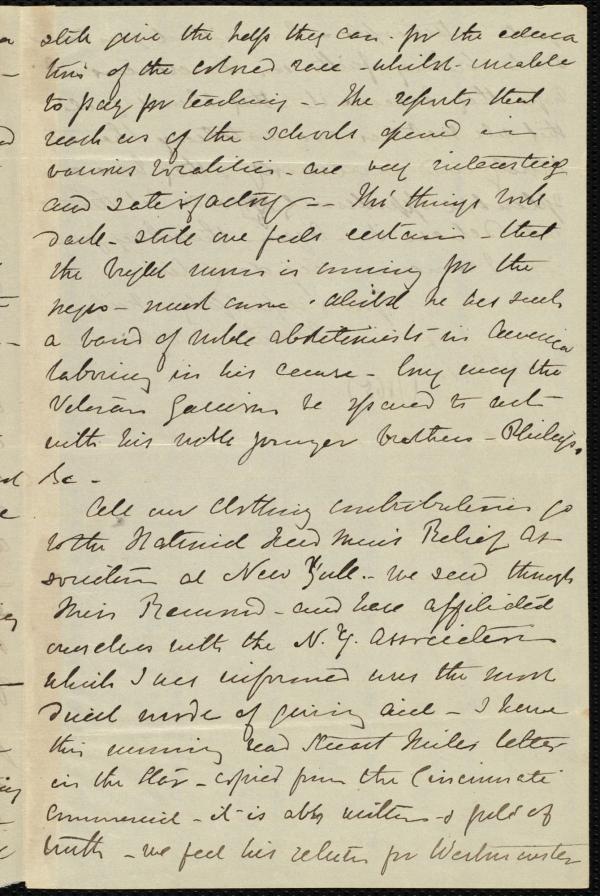 still give the help they can - for the educa
tion of the colored race - whilst unable
to pay for teaching -- The reports that
reach us of the schools opened in
various localities - are very interesting
and satisfactory -- Tho' things look
dark - still one feels certain - that
the bright morn is coming for the
negro - must come, whilst he has such
a band of noble abolitionists in America
laboring in his cause - long may the
Veteran Garrison be spared to act
with his noble younger brothers - Phillips,
&c -
All our clothing contributions go
to the National Freedmen's Relief As
sociation at New York - we send through
Miss Remond - and have affiliated
ourselves with the N.Y. Association
which I was informed was the most
direct mode of giving aid - I have
this morning read Stuart Mills letter
in the Star - copied from the Cincinnati
Commercial - it is ably written & full of
truth - we feel his return for Westminster